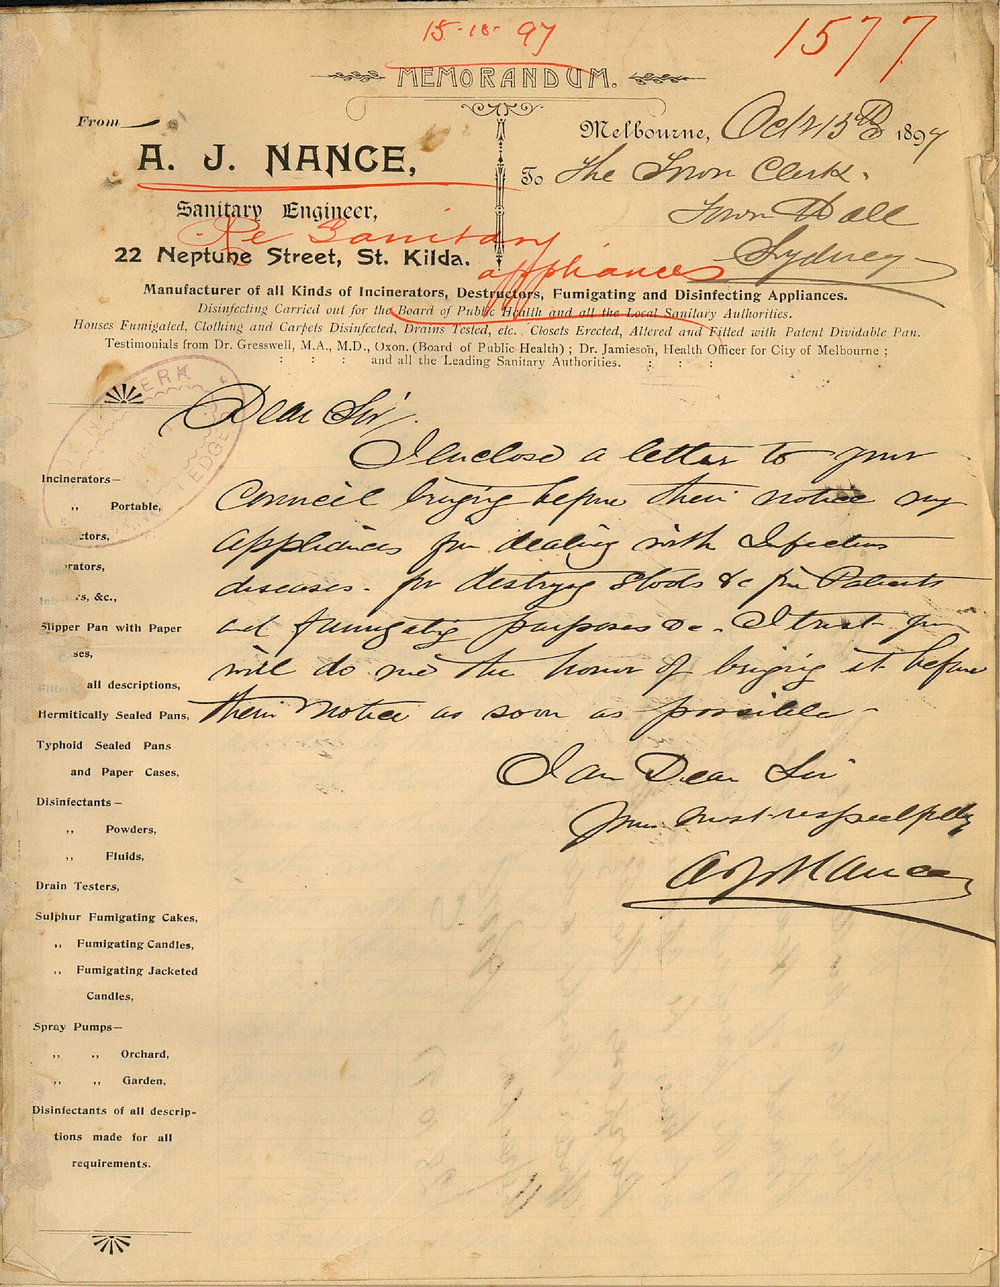 15-10-97
1577
MEMORANDUM.
From
Melbourne, Octr 15th 1897
A. J. NANCE,
To The Town Clerk.
Sanitary Engineer,
Town Hall
Re Sanitary
22 Neptune Street, St. Kilda.
Sydney
appliances
Manufacturer of all Kinds of Incinerators, Destructors, Fumigating and Disinfecting Appliances.
Disinfecting Carried out for the Board of Public Health and all the Local Sanitary Authorities.
Houses Fumigated, Clothing and Carpets Disinfected, Drains Tested, etc. Closets Erected, Altered and Fitted with Patent Dividable Pan.
Testimonials from Dr. Gresswell, M.A., M.D., Oxon. (Board of Public Health) ; Dr. Jamieson, Health Officer for City of Melbourne ;
: : : and all the Leading Sanitary Authorities. : : :
Dear Sir/.
I enclose a letter to your
Council bringing before their notice my
appliances for dealing with Infectious
diseases. for destroying Stools &c from Patients
and fumigating purposes &c. I trust you
will do me the honor of bringing it before
their notice as soon as possible-
I am Dear Sir
Yours most respectfully
A J Nance
Incinerators—
,, Portable,
ctors,
rators,
rs, &c.,
Slipper Pan with Paper
ses,
all descriptions,
Hermitically Sealed Pans,
Typhoid Sealed Pans
and Paper Cases,
Disinfectants –
,, Powders,
,, Fluids,
Drain Testers,
Sulphur Fumigating Cakes,
,, Fumigating Candles,
,, Fumigating Jacketed
Candles,
Spray Pumps—
,, ,, Orchard,
,, ,, Garden,
Disinfectants of all descrip-
tions made for all
requirements.